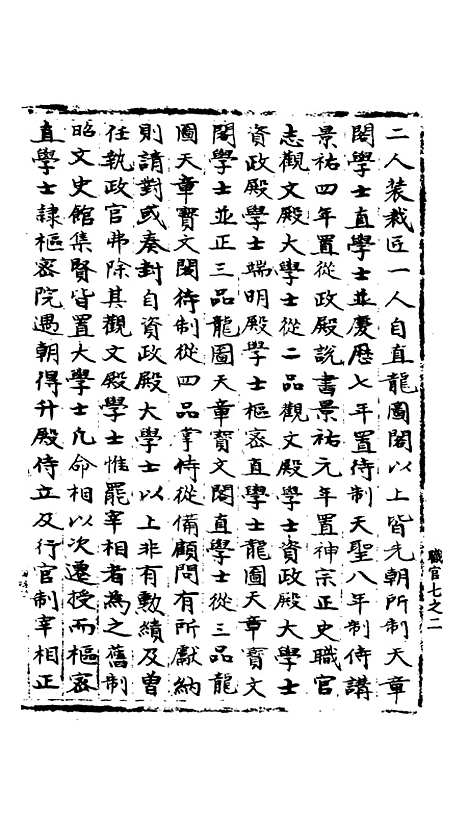 二人装裁匠一人自直龍圖閣以上皆先朝所制天章
閣學士直學士並慶曆七年置待制天聖八年制侍講
景祐四年置從政殿說書景祐元年置神宗正史職官
志觀文殿大學士從二品觀文殿學士資政殿大學士
資政殿學士端明殿學士樞密直學士龍圖天章寳文
閣學士並正三品龍圖天章寳文閣直學士從三品龍
圖天章寳文閣待制從四品掌侍從備顧問有所獻納
則請對或奏封自資政殿大學士以上非有勲績及曽
任執政官弗除其觀文殿學士惟罷宰相者為之舊制
昭文史館集賢皆置大學士凢命相以次遷授而樞密
直學士隷樞密院遇朝得升殿侍立及行官制宰相正
職官七之二